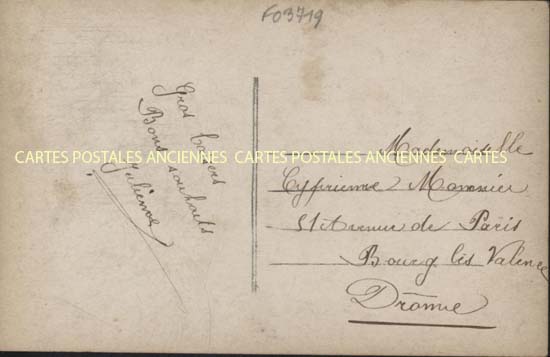 F03719
Gros baisers
Bons souhaits
Julienne
CARTES POSTALES ANCIENNES CARTES POSTALES ANCIENNES CARTES
Mademoiselle
Cyprienne Monnier
51 Avenue de Paris
Bourg lès Valence
Drôme